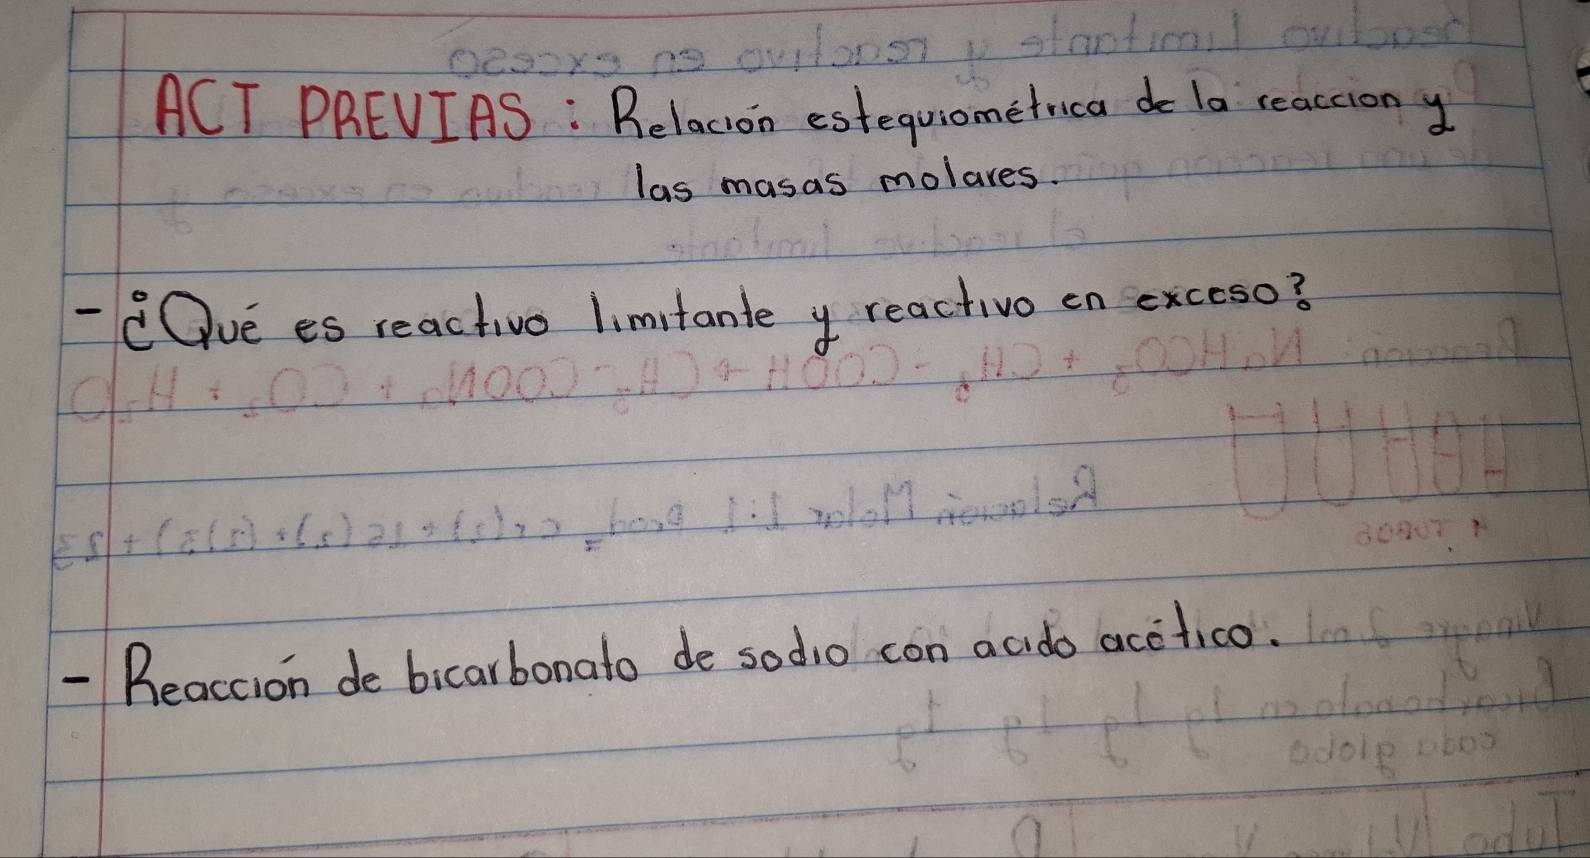 ACT PREVIAS : Relación estequiométrica de la reaccion y
las masas molares.
- ¿Qué es reactivo limitante y reactivo en exceso?
- Reacción de bicarbonato de sodio con acido acético.